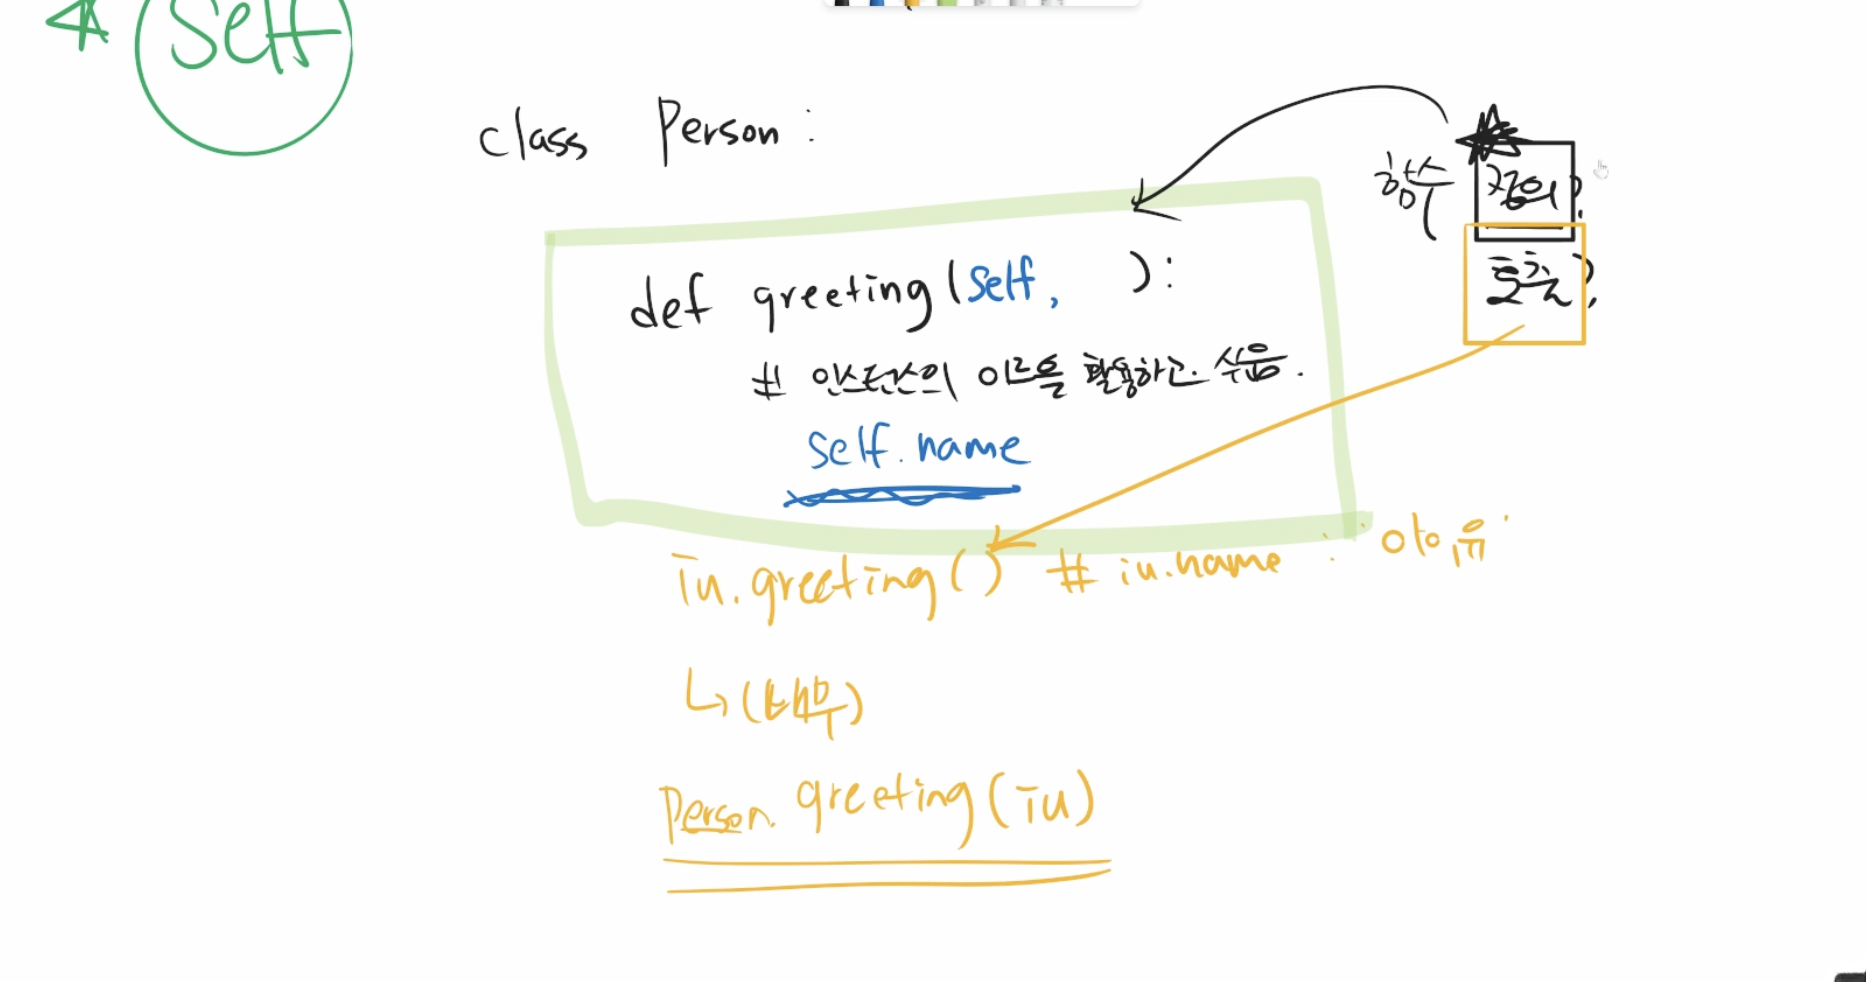 self
class Person:
함수 정의?
호출?
def greeting(self, ):
# 인스턴스의 이름을 활용하고 싶음.
self.name
iu.greeting() # iu.name : '아이유'
↳ (내부)
Person.greeting(iu)